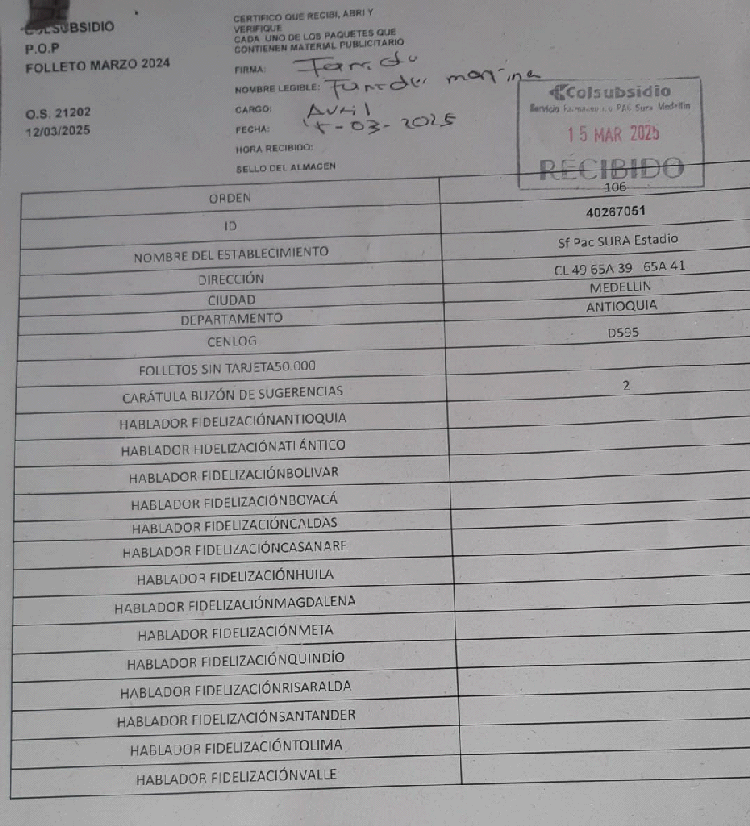 COLSUBSIDIO
P.O.P
FOLLETO MARZO 2024
O.S. 21202
12/03/2025
CERTIFICO QUE RECIBI, ABRI Y
VERIFIQUE
CADA UNO DE LOS PAQUETES QUE
CONTIENEN MATERIAL PUBLICITARIO
FIRMA:
NOMBRE LEGIBLE:
CARGO:
FECHA: 15-03-2025
HORA RECIBIDO:
SELLO DEL ALMACEN
Colsubsidio
Servicio PAC Sura Medellin
15 MAR 2025
RECIBIDO
ORDEN 106
ID 40267051
NOMBRE DEL ESTABLECIMIENTO Sf Pac SURA Estadio
DIRECCIÓN CL 49 65A 39 65A 41
CIUDAD MEDELLIN
DEPARTAMENTO ANTIOQUIA
CENLOG D595
FOLLETOS SIN TARJETA50.000
CARÁTULA BUZÓN DE SUGERENCIAS 2
HABLADOR FIDELIZACIÓNANTIOQUIA
HABLADOR FIDELIZACIÓNATLÁNTICO
HABLADOR FIDELIZACIÓNBOLIVAR
HABLADOR FIDELIZACIÓNBOYACÁ
HABLADOR FIDELIZACIÓNCALDAS
HABLADOR FIDELIZACIÓNCASANARE
HABLADOR FIDELIZACIÓNHUILA
HABLADOR FIDELIZACIÓNMAGDALENA
HABLADOR FIDELIZACIÓNMETA
HABLADOR FIDELIZACIÓNQUINDÍO
HABLADOR FIDELIZACIÓNRISARALDA
HABLADOR FIDELIZACIÓNSANTANDER
HABLADOR FIDELIZACIÓNTOLIMA
HABLADOR FIDELIZACIÓNVALLE